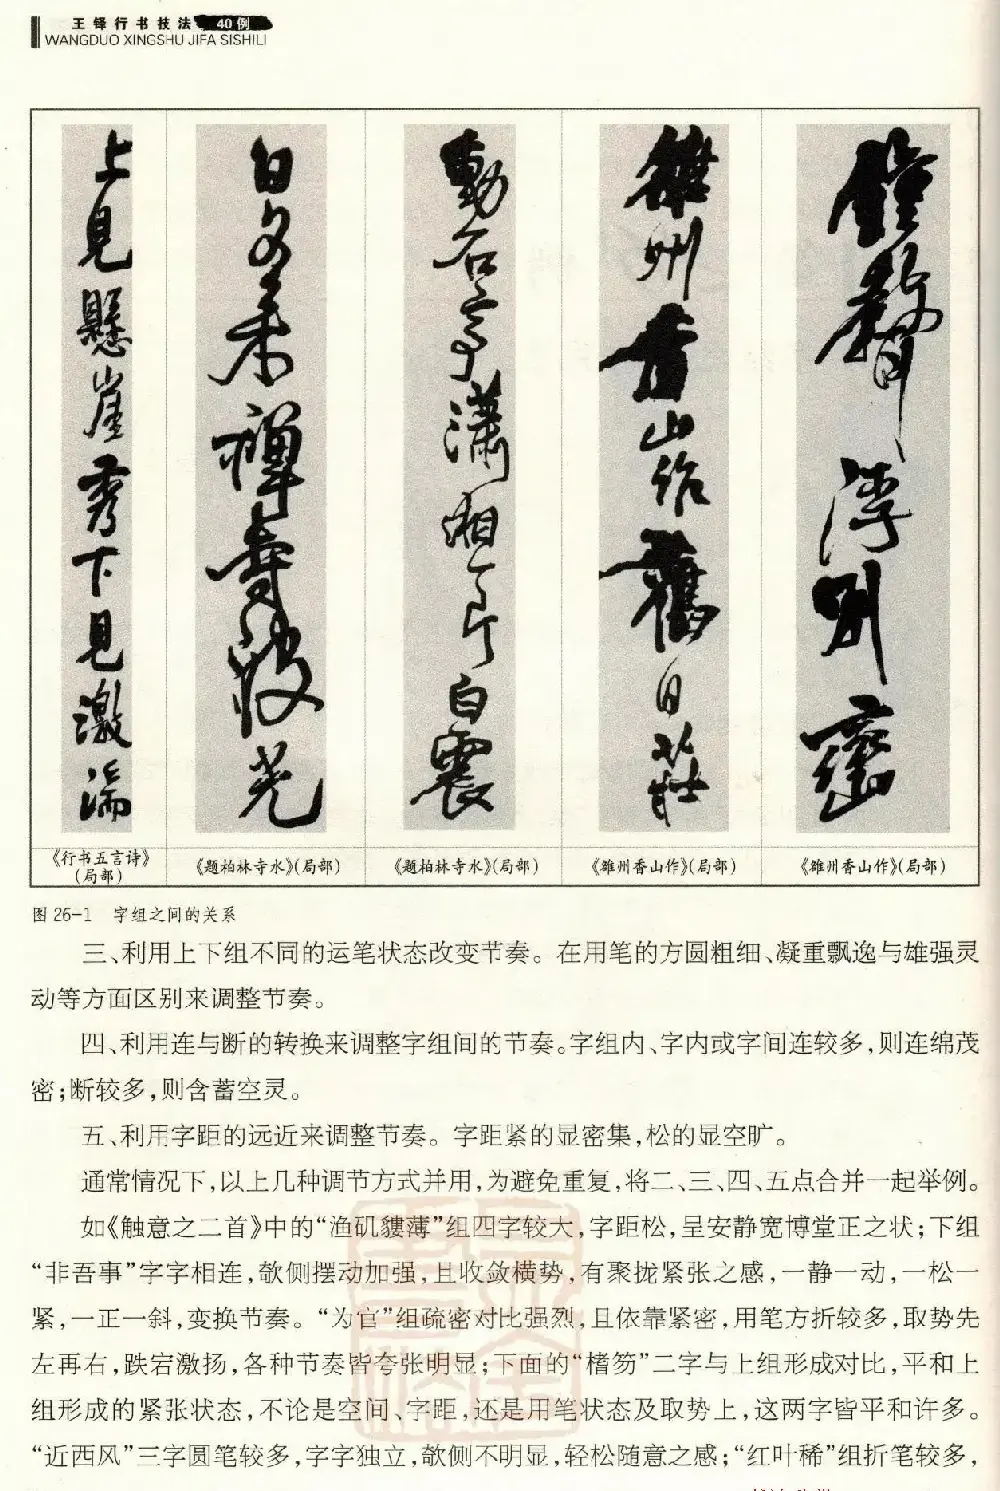 王铎行书技法 40例
WANGDUO XINGSHU JIFA SISHILI
上见悬崖秀下见激湍
《行书五言诗》
(局部)
《题柏林寺水》(局部)
动石亭潇湘
白震
《题柏林寺水》(局部)
雒州香山作旧日庄
《雒州香山作》(局部)
钟声浮别峦
《雒州香山作》(局部)
图26-1 字组之间的关系
三、利用上下组不同的运笔状态改变节奏。在用笔的方圆粗细、凝重飘逸与雄强灵
动等方面区别来调整节奏。
四、利用连与断的转换来调整字组间的节奏。字组内、字内或字间连较多,则连绵茂
密;断较多,则含蓄空灵。
五、利用字距的远近来调整节奏。字距紧的显密集,松的显空旷。
通常情况下,以上几种调节方式并用,为避免重复,将二、三、四、五点合并一起举例。
如《触意之二首》中的“渔矶貗薄”组四字较大,字距松,呈安静宽博堂正之状;下组
“非吾事”字字相连,欹侧摆动加强,且收敛横势,有聚拢紧张之感,一静一动,一松一
紧,一正一斜,变换节奏。“为官”组疏密对比强烈,且依靠紧密,用笔方折较多,取势先
左再右,跌宕激扬,各种节奏皆夸张明显;下面的“楮笏”二字与上组形成对比,平和上
组形成的紧张状态,不论是空间、字距,还是用笔状态及取势上,这两字皆平和许多。
“近西风”三字圆笔较多,字字独立,欹侧不明显,轻松随意之感;“红叶稀”组折笔较多,